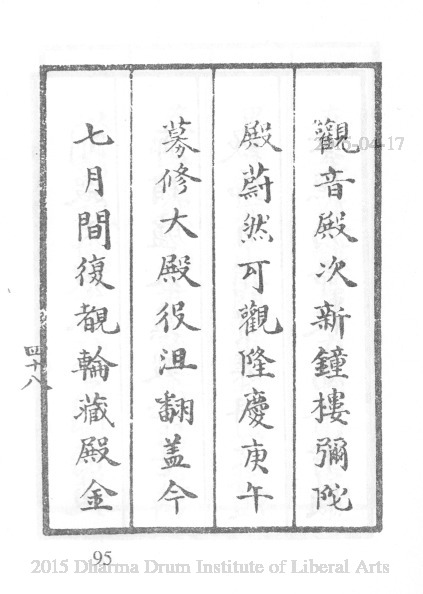 觀音殿次新鐘樓彌陀
殿蔚然可觀隆慶庚午
募修大殿役沮翻盖今
七月間復覩輪藏殿金
四十八
95
2015 Dharma Drum Institute of Liberal Arts